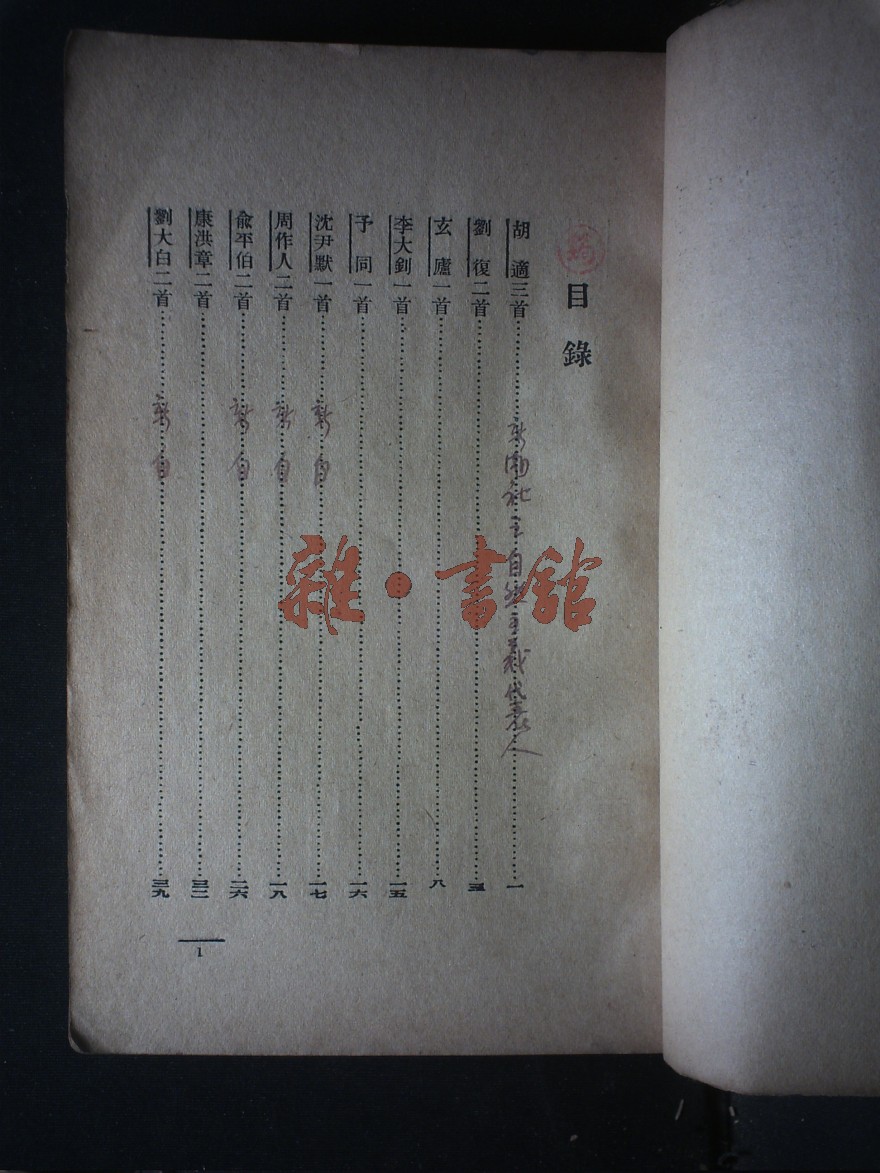 目錄
胡適三首……一
新潮社 自然主義代表人
劉復二首……五
玄廬一首……八
李大釗一首……一五
予同一首……一六
沈尹默一首……一七
新 自
周作人二首……一八
新 自
俞平伯二首……二六
新 自
康洪章二首……三二
劉大白二首……三九
新 自
1
雜·書館